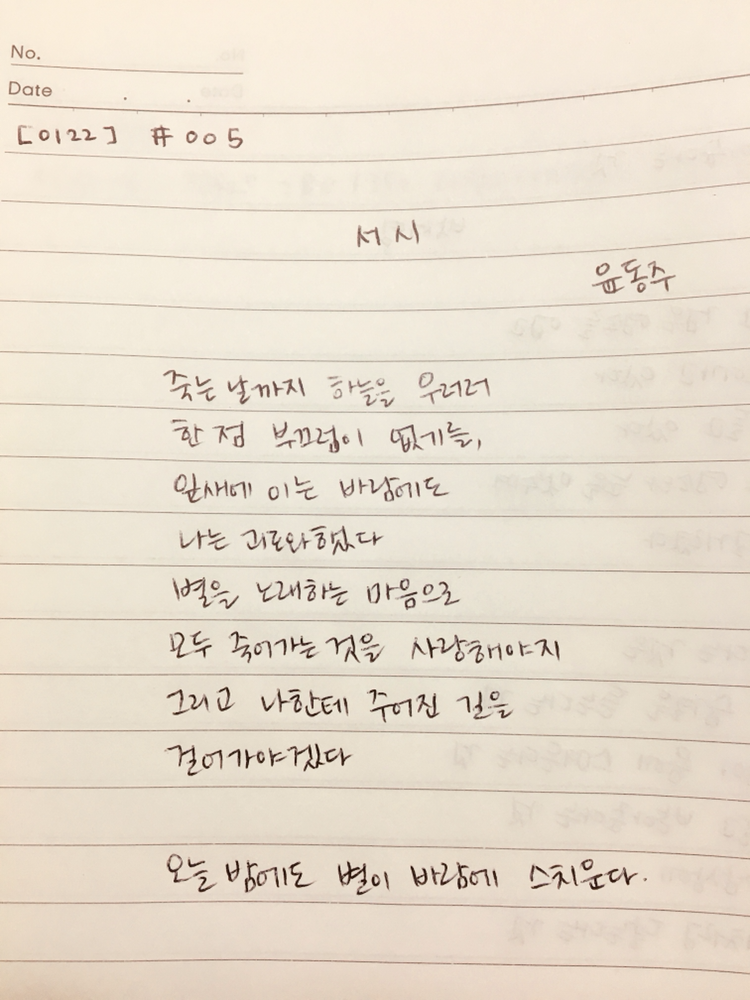 No.
Date . .
[0122] #005
서시
윤동주
죽는 날까지 하늘을 우러러
한 점 부끄럼이 없기를,
잎새에 이는 바람에도
나는 괴로와했다
별을 노래하는 마음으로
모두 죽어가는 것을 사랑해야지
그리고 나한테 주어진 길을
걸어가야겠다
오늘 밤에도 별이 바람에 스치운다.